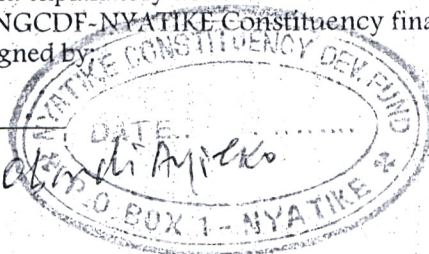 NGCDF-NYATIKE Constituency fina
gned by:
NYATIKE CONSTITUENCY DEV. FUND
DATE..............
P.O. BOX 1 - NYATIKE